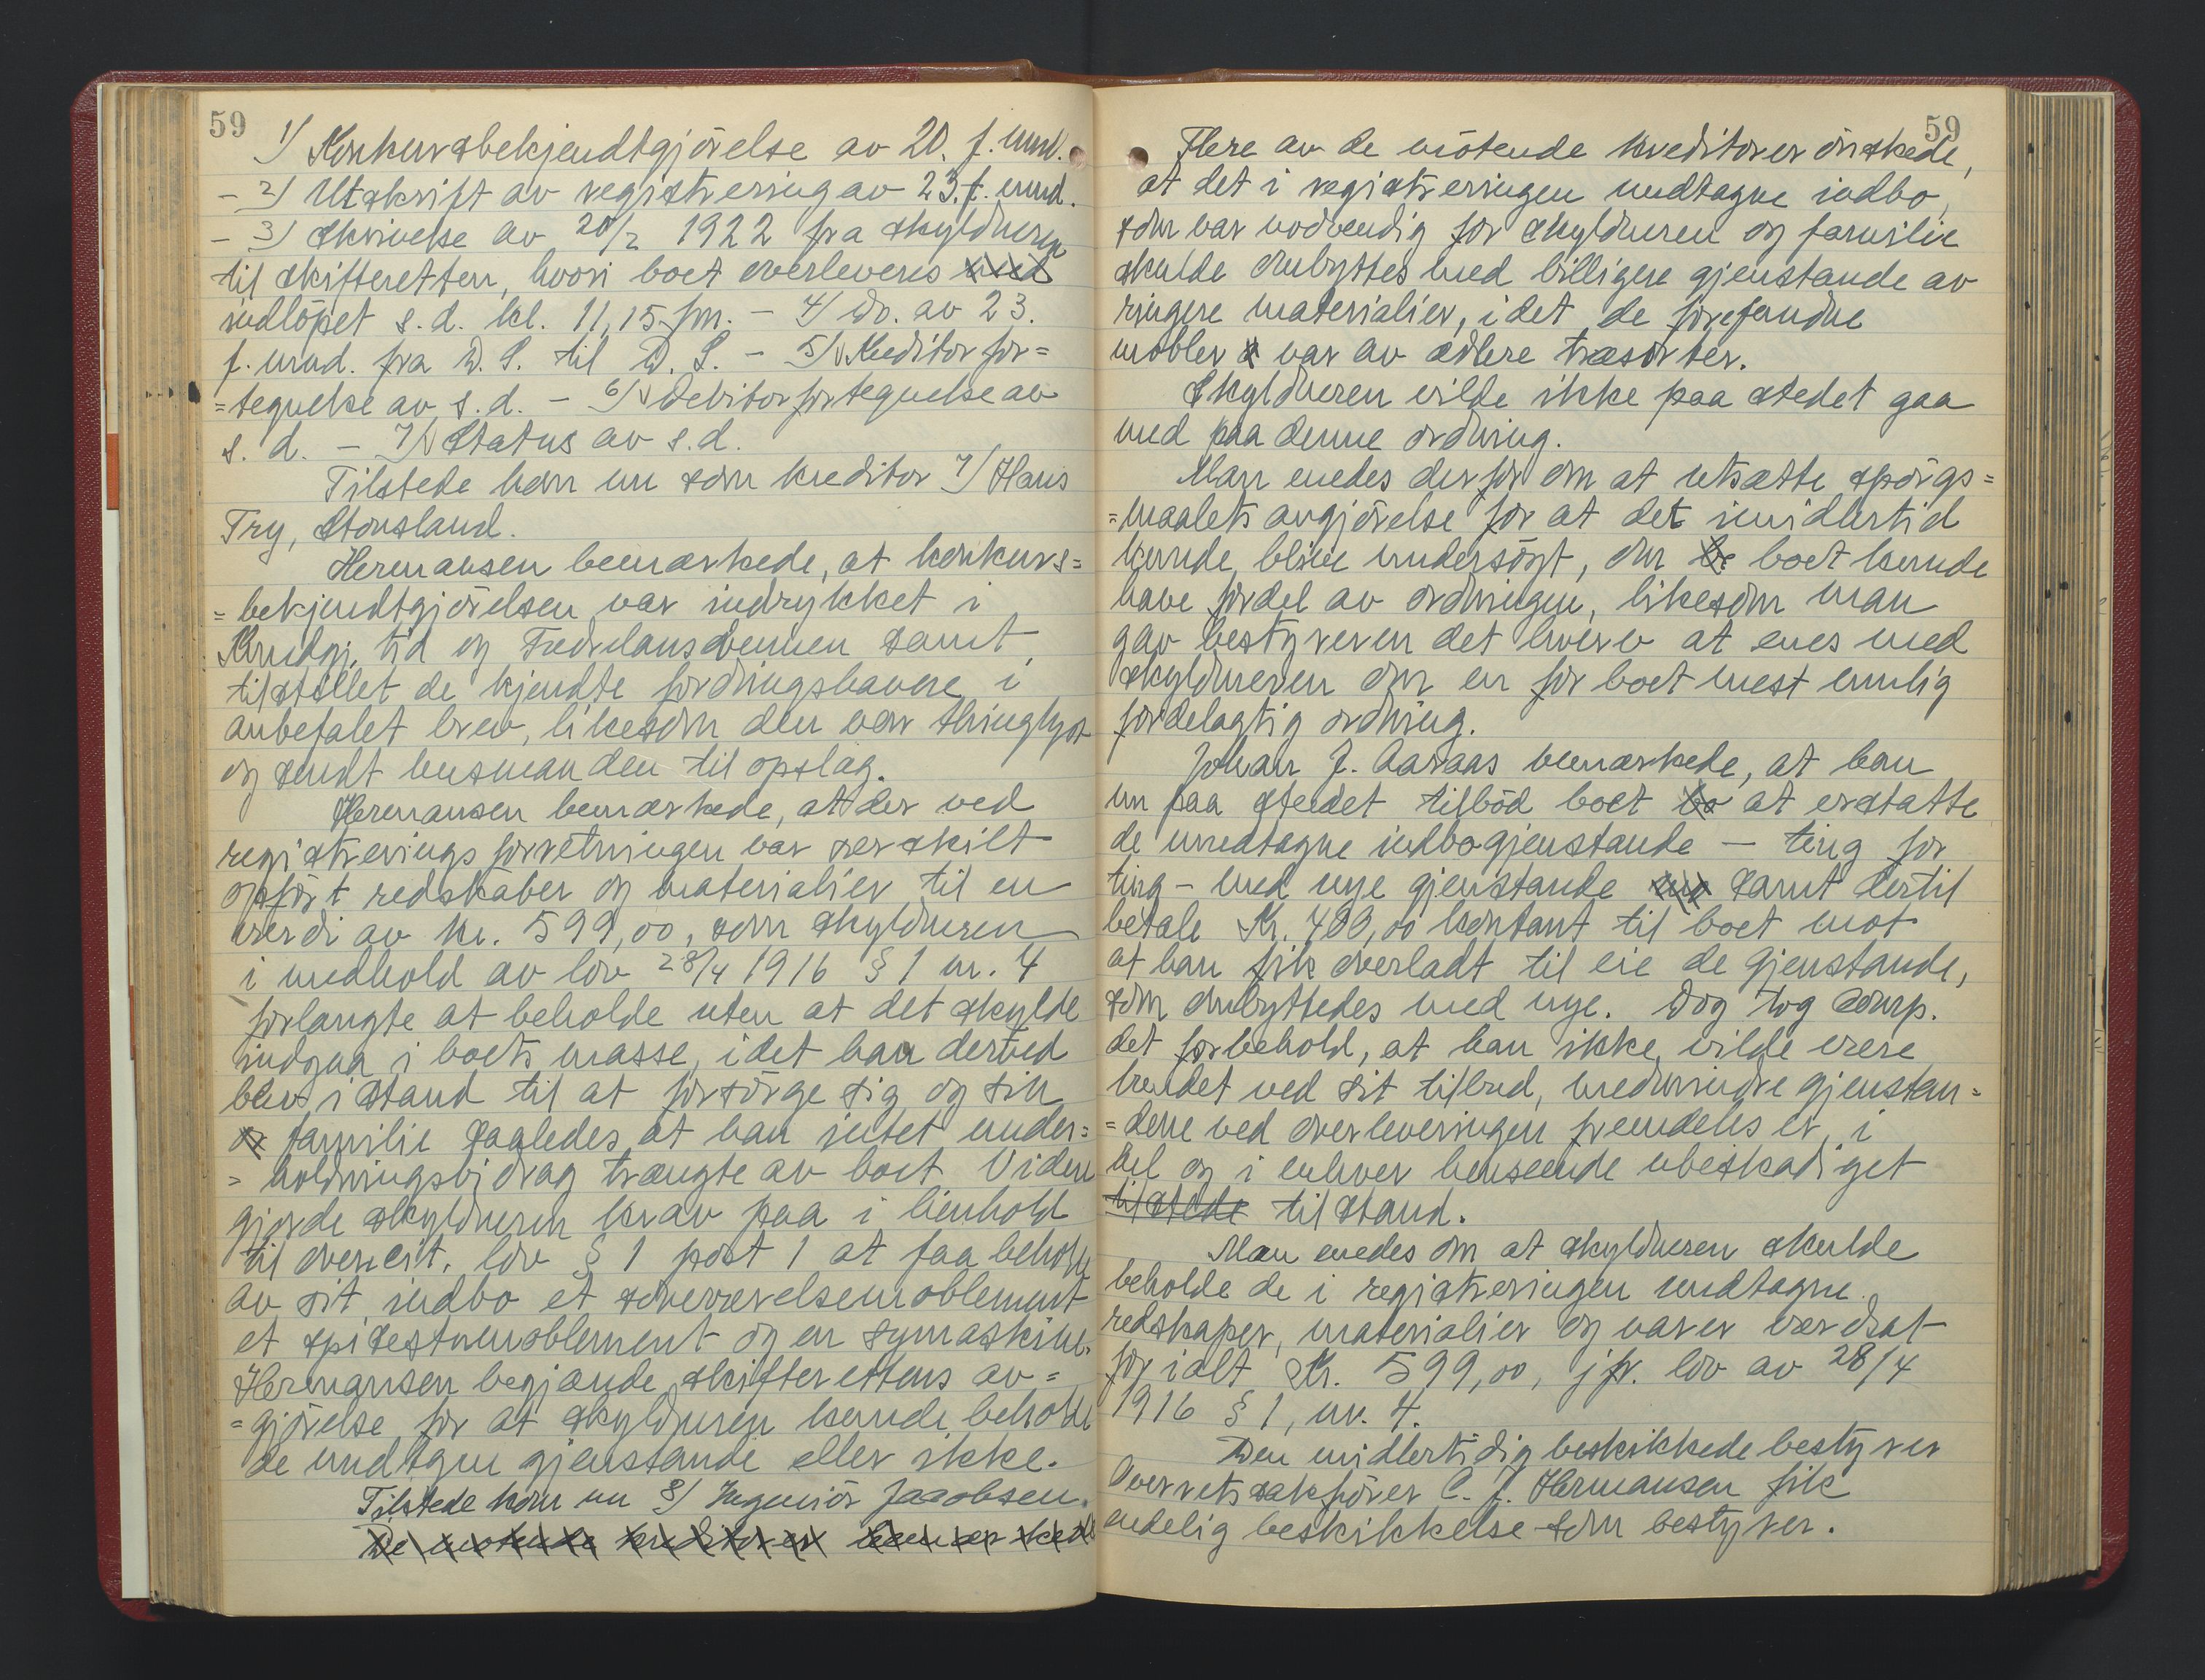 59
1/ Konkursbekjendtgjörelse av 20. f. mnd.
- 2/ Utskrift av registrering av 23. f. mnd.
- 3/ Skrivelse av 20/2 1922 fra skyldneren
til skifteretten, hvori boet overleveres
indlöpet s. d. kl. 11,15 fm. - 4/ Do. av 23.
f. mnd. fra D. S. til D. S. - 5/ Kreditorfor=
=tegnelse av s. d. - 6/ Debitorfortegnelse av
s. d. - 7/ Status av s. d.
Tilstede kom nu som kreditor 7/ Hans
Try, Stousland.
Hermansen bemærkede, at konkurs=
=bekjendtgjörelsen var indrykket i
Kundgj. tid og Fædrelandsvennen samt
tilstillet de kjendte fordringshavere i
anbefalet brev, likesom den var thinglyst
og sendt lensmanden til opslag.
Hermansen bemærkede, at der ved
registreringsforretningen var særskilt
opført redskaber og materialier til en
værdi av kr. 599,00, som skyldneren
i medhold av lov 28/4 1916 § 1 nr. 4
forlangte at beholde uten at det skulde
indgaa i boets masse, idet han derved
blev i stand til at forsörge sig og sin
familie saaledes at han intet under=
=holdningsbidrag trængte av boet. Videre
gjorde skyldneren krav paa i henhold
til overcit. lov § 1 post 1 at faa beholde
av sit indbo et soveværelsemøblement
et spisestuemøblement og en symaskine.
Hermansen begjærede skifterettens av=
=gjörelse for at skyldneren kunde beholde
de undtagne gjenstande eller ikke.
Tilstede kom nu 8/ Ingeniör Jacobsen.
De mötende kreditorer bemærkede
59
Flere av de mötende kreditorer önskede,
at det i registreringen undtagne indbo,
som var nödvendig for skyldneren og familie
skulde ombyttes med billigere gjenstande av
ringere materialier, idet de forefundne
möbler var av ædlere træsorter.
Skyldneren vilde ikke paa stedet gaa
med paa denne ordning.
Man enedes derfor om at utsætte spörgs=
=maalets avgjörelse for at det imidlertid
kunde blive undersögt, om boet kunde
have fordel av ordningen, likesom man
gav bestyreren det hverv at enes med
skyldneren om en for boet mest mulig
fordelagtig ordning.
Johan J. Aaraas bemærkede, at han
nu paa stedet tilböd boet at erstatte
de undtagne indbogjenstande - ting for
ting - med nye gjenstande samt dertil
betale Kr. 400,00 kontant til boet mot
at han fik overladt til eie de gjenstande,
som ombyttedes med nye. Dog tog comp.
det forbehold, at han ikke vilde være
bundet ved sit tilbud, medmindre gjenstan=
=dene ved overleveringen fremdeles er i
hel og i enhver henseende ubeskadiget
tilstede tilstand.
Man enedes om at skyldneren skulde
beholde de i registreringen undtagne
redskaper, materialier og varer værdsat
for ialt Kr. 599,00, jfr. lov av 28/4
1916 § 1, nr. 4.
Den midlertidig beskikkede bestyrer
Overretssakförer C. J. Hermansen fik
endelig beskikkelse som bestyrer.